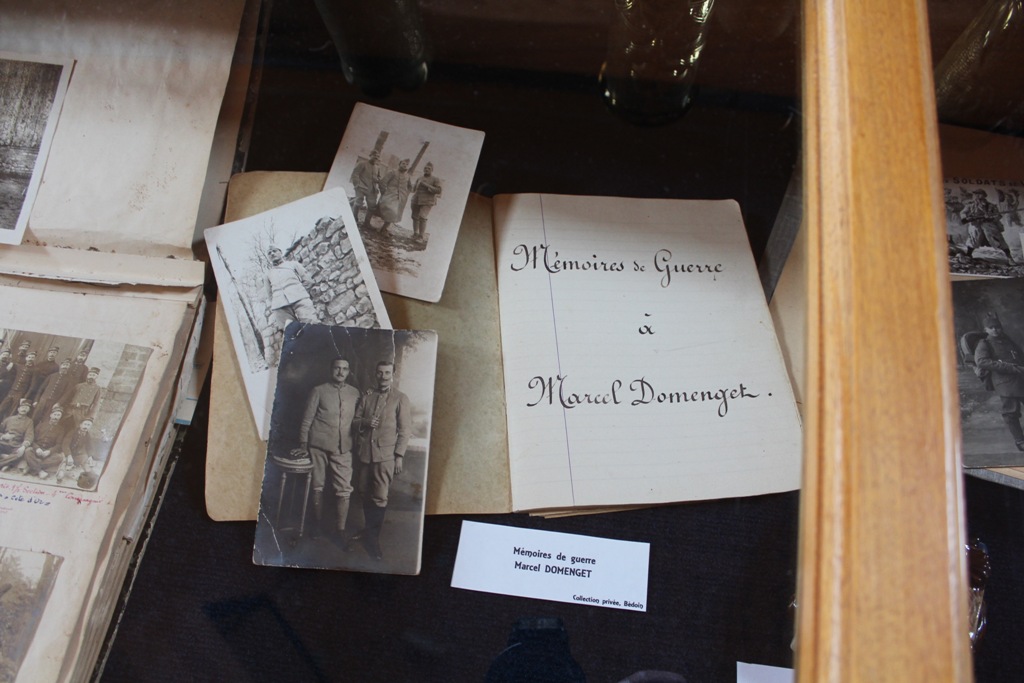 Mémoires de Guerre
à
Marcel Domenget.
Mémoires de guerre
Marcel DOMENGET
Collection privée, Bédoin
SOLDATS